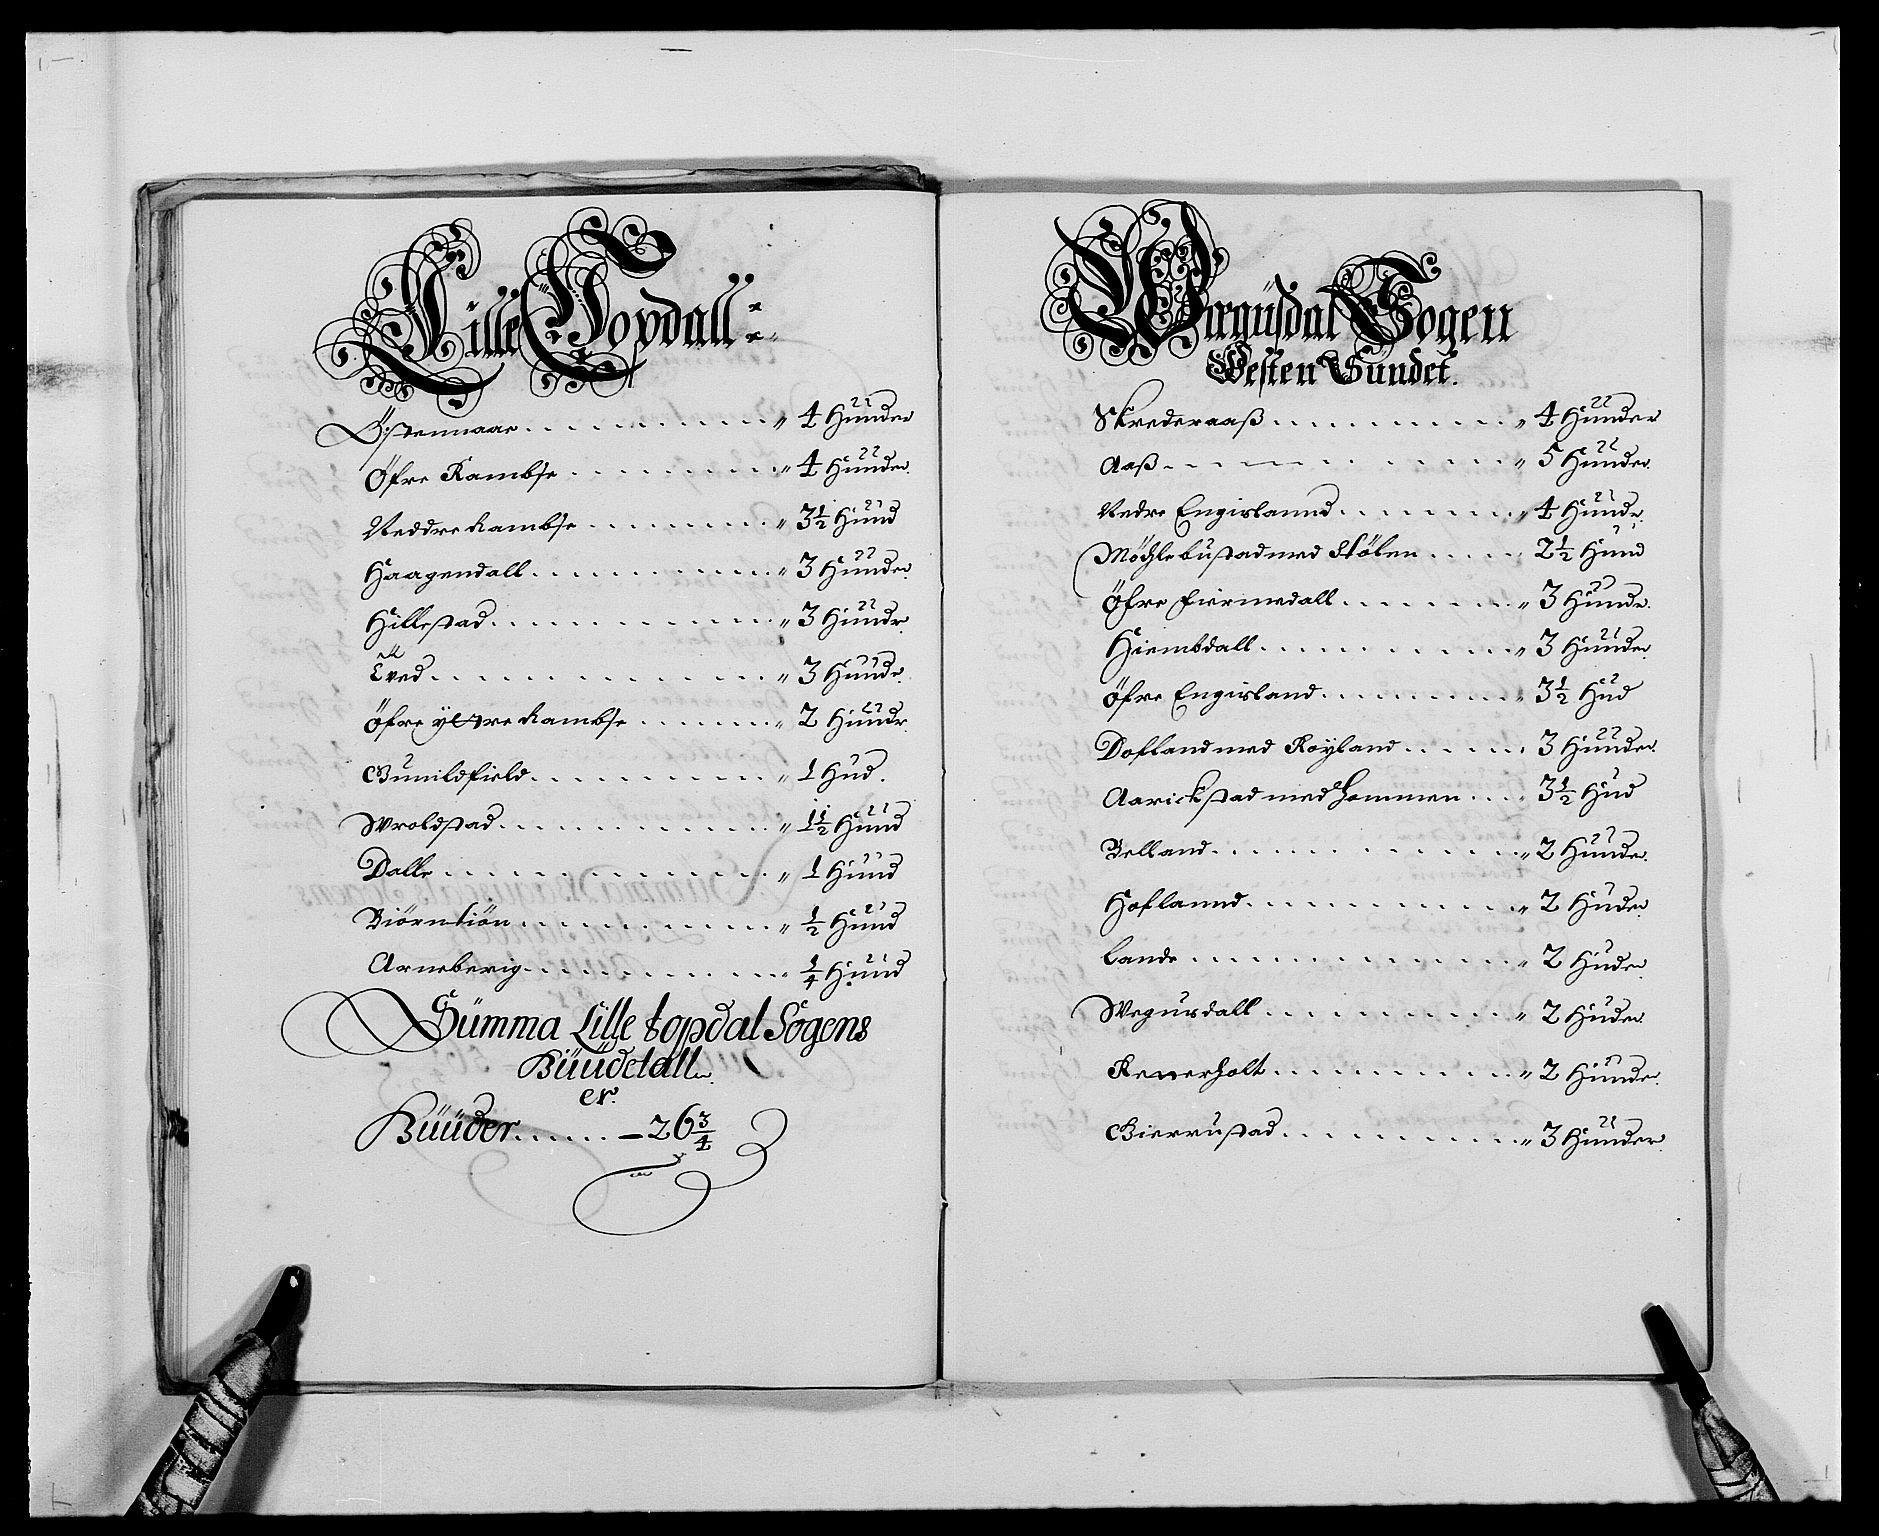 Lille Topdall
Östennaae 4 Hunder
Öfre Rambse 4 Hunder
Neddre Rambse 3½ Hund
Haagendall 3 Hunder
Hillestad 3 Hundr
Tved 3 Hundr
Öfre yttre Rambse 2 Hundr
Gunildfield 1 Hud
Wroldstad 1½ Hund
Dalle 1 Hund
Biörntiön ½ Hund
Arneberig ¼ Hund
Summa Lille topdal Sogens
Huudetall
er
Huuder 26¾
Wægusdal Sogen
Westen Sundet
Skrederaaß 4 Hunder
Aaß 5 Hunder
Nedre Engislannd 4 Hundr
Möchlebustad med Stölen 2½ Hund
Öfre Fiermedall 3 Hundr
Hiembdall 3 Hunder
Öfre Engisland 3½ Hud
Dofland med Röyland 3 Hunder
Aarickstad med Hommen 3½ Hud
Belland 2 Hunder
Hoflannd 2 Huder
Lande 2 Huder
Wegusdall 2 Huder
Renerholt 2 Hunder
Gierrustad 3 Hunder